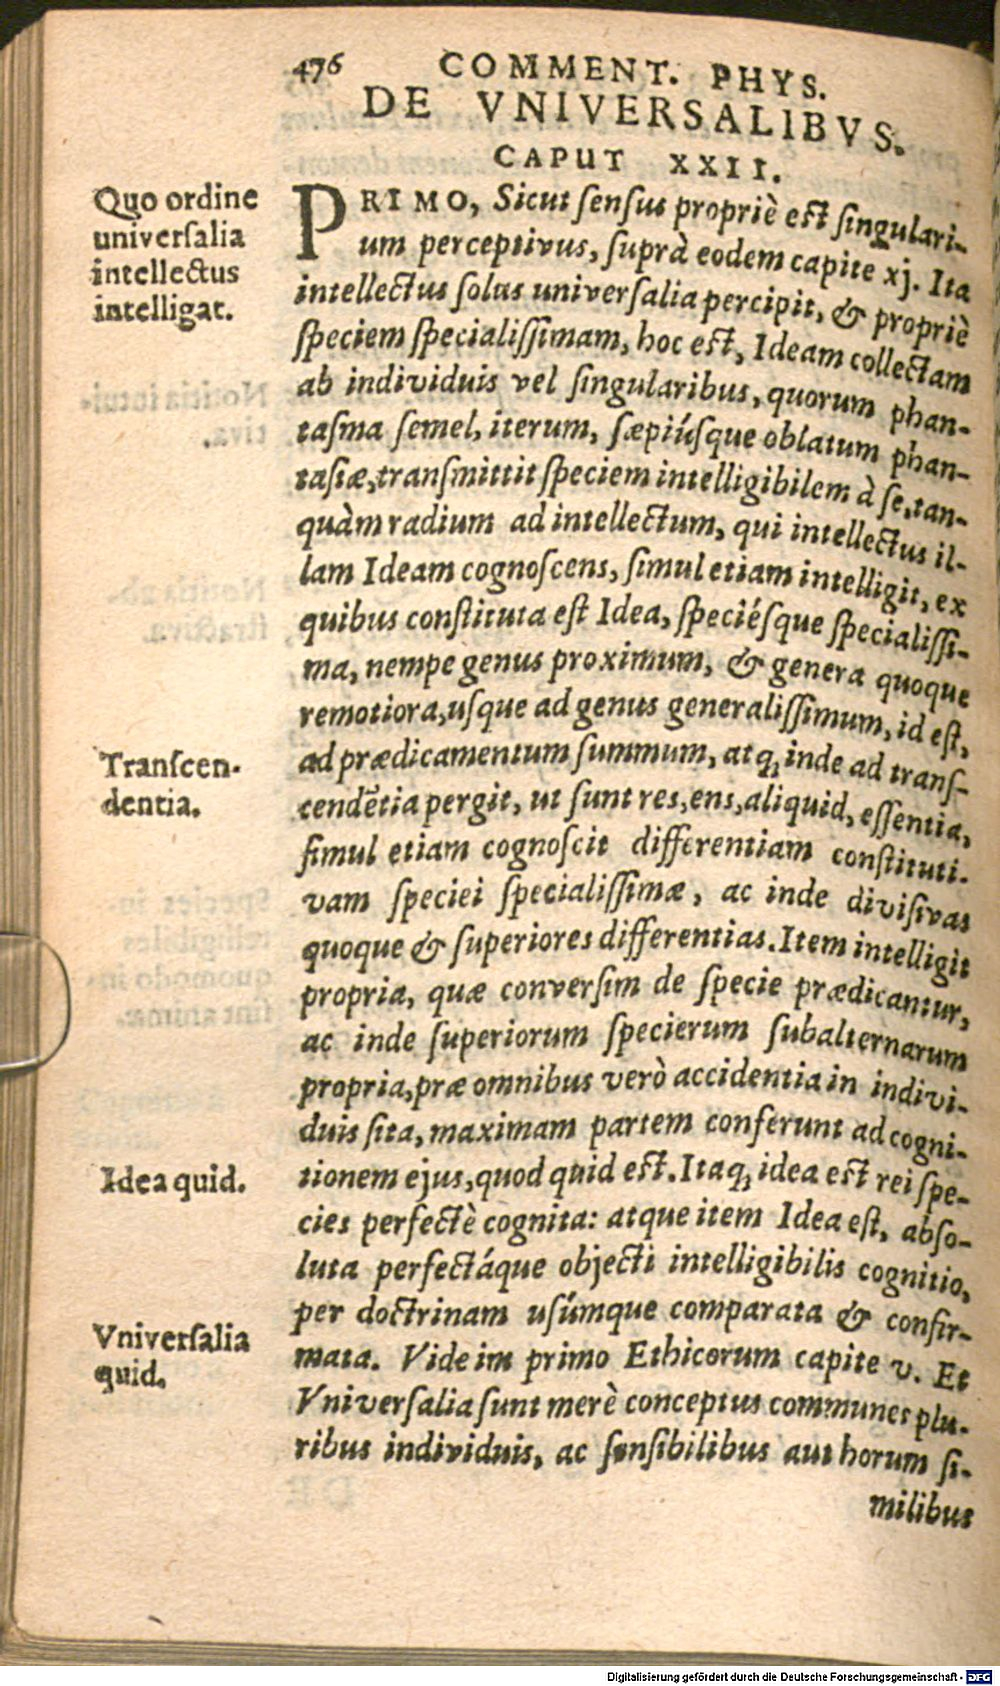 476 COMMENT. PHYS.
DE VNIVERSALIBVS.
CAPUT XXII.
Quo ordine
universalia
intellectus
intelligat.
PRIMO, Sicut sensus propriè est singulari-
um perceptivus, suprà eodem capite xj. Ita
intellectus solus universalia percipit, & propriè
speciem specialissimam, hoc est, Ideam collectam
ab individuis vel singularibus, quorum phan-
tasma semel, iterum, sæpiúsque oblatum phan-
tasiæ, transmittit speciem intelligibilem à se, tan-
quàm radium ad intellectum, qui intellectus il-
lam Ideam cognoscens, simul etiam intelligit, ex
quibus constituta est Idea, speciésque specialissi-
ma, nempe genus proximum, & genera quoque
remotiora, usque ad genus generalissimum, id est,
Transcen-
dentia.
ad prædicamentum summum, atq; inde ad trans-
cendẽtia pergit, ut sunt res, ens, aliquid, essentia,
simul etiam cognoscit differentiam constituti-
vam speciei specialissimæ, ac inde divisivas
quoque & superiores differentias. Item intelligit
propria, quæ conversim de specie prædicantur,
ac inde superiorum specierum subalternarum
propria, præ omnibus verò accidentia in indivi-
duis sita, maximam partem conferunt ad cogni-
Idea quid.
tionem ejus, quod quid est. Itaq; idea est rei spe-
cies perfectè cognita: atque item Idea est, abso-
luta perfectáque objecti intelligibilis cognitio,
per doctrinam usúmque comparata & confir-
Vniversalia
quid.
mata. Vide in primo Ethicorum capite v. Et
Vniversalia sunt merè conceptus communes plu-
ribus individuis, ac sensibilibus aut horum si-
milibus
Digitalisierung gefördert durch die Deutsche Forschungsgemeinschaft - DFG